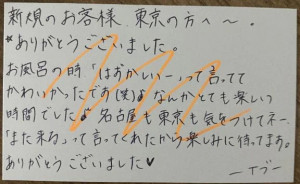 新規のお客様、東京の方へ〜。
*ありがとうございました。
お風呂の時「はずかしいー」って言ってて
かわいかったであ(笑)♪なんかとても楽しい
時間でした♪名古屋も東京も気をつけてネー
「また来る」って言ってくれたから楽しみに待ってます。
ありがとうございました♥